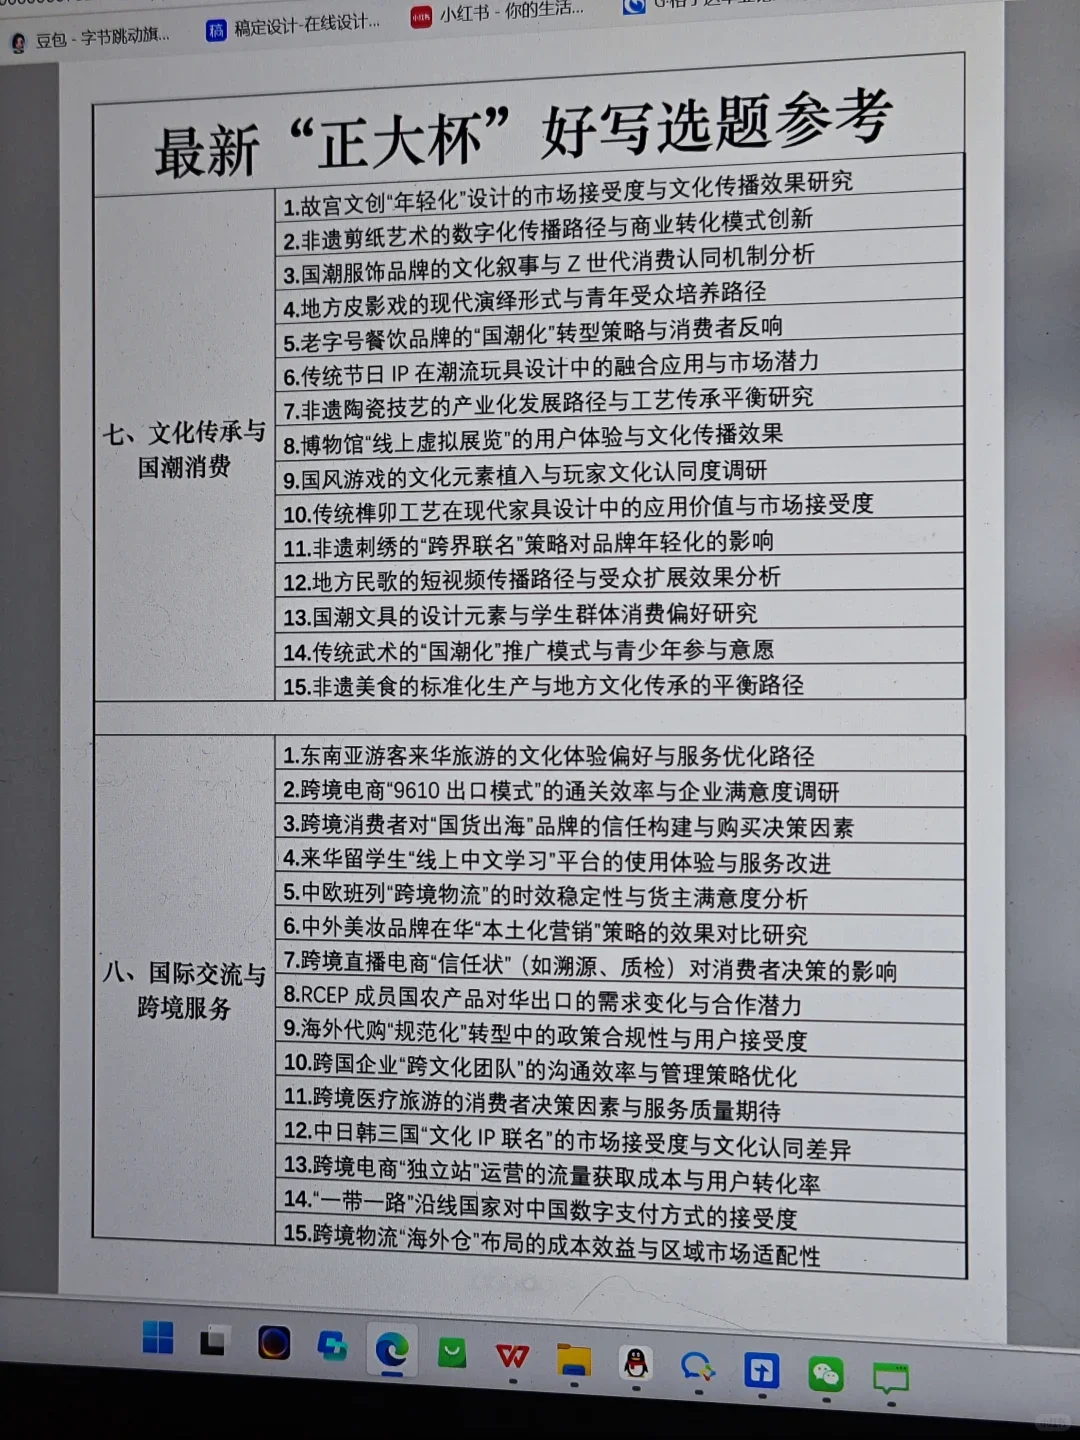 豆包 - 字节跳动旗...
稿定设计-在线设计...
小红书 - 你的生活...
最新“正大杯”好写选题参考
七、文化传承与
国潮消费
1.故宫文创“年轻化”设计的市场接受度与文化传播效果研究
2.非遗剪纸艺术的数字化传播路径与商业转化模式创新
3.国潮服饰品牌的文化叙事与 Z 世代消费认同机制分析
4.地方皮影戏的现代演绎形式与青年受众培养路径
5.老字号餐饮品牌的“国潮化”转型策略与消费者反响
6.传统节日 IP 在潮流玩具设计中的融合应用与市场潜力
7.非遗陶瓷技艺的产业化发展路径与工艺传承平衡研究
8.博物馆“线上虚拟展览”的用户体验与文化传播效果
9.国风游戏的文化元素植入与玩家文化认同度调研
10.传统榫卯工艺在现代家具设计中的应用价值与市场接受度
11.非遗刺绣的“跨界联名”策略对品牌年轻化的影响
12.地方民歌的短视频传播路径与受众扩展效果分析
13.国潮文具的设计元素与学生群体消费偏好研究
14.传统武术的“国潮化”推广模式与青少年参与意愿
15.非遗美食的标准化生产与地方文化传承的平衡路径
八、国际交流与
跨境服务
1.东南亚游客来华旅游的文化体验偏好与服务优化路径
2.跨境电商“9610 出口模式”的通关效率与企业满意度调研
3.跨境消费者对“国货出海”品牌的信任构建与购买决策因素
4.来华留学生“线上中文学习”平台的使用体验与服务改进
5.中欧班列“跨境物流”的时效稳定性与货主满意度分析
6.中外美妆品牌在华“本土化营销”策略的效果对比研究
7.跨境直播电商“信任状”（如溯源、质检）对消费者决策的影响
8.RCEP 成员国农产品对华出口的需求变化与合作潜力
9.海外代购“规范化”转型中的政策合规性与用户接受度
10.跨国企业“跨文化团队”的沟通效率与管理策略优化
11.跨境医疗旅游的消费者决策因素与服务质量期待
12.中日韩三国“文化 IP 联名”的市场接受度与文化认同差异
13.跨境电商“独立站”运营的流量获取成本与用户转化率
14.“一带一路”沿线国家对中国数字支付方式的接受度
15.跨境物流“海外仓”布局的成本效益与区域市场适配性